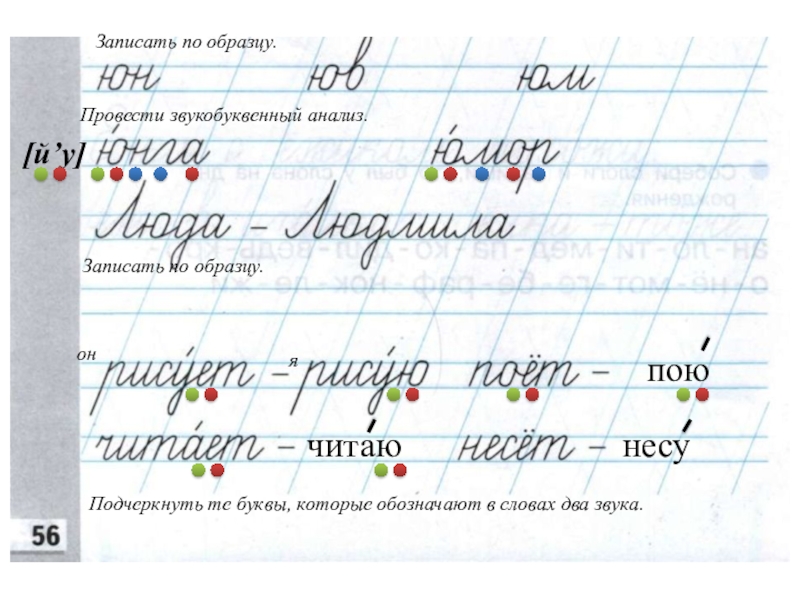 Записать по образцу.
юн юв юм
Провести звукобуквенный анализ.
[й’у] ю́нга ю́мор
Люда – Людмила
Записать по образцу.
он рису́ет – я рису́ю поёт – пою́
чита́ет – чита́ю несёт – несу́
Подчеркнуть те буквы, которые обозначают в словах два звука.
56